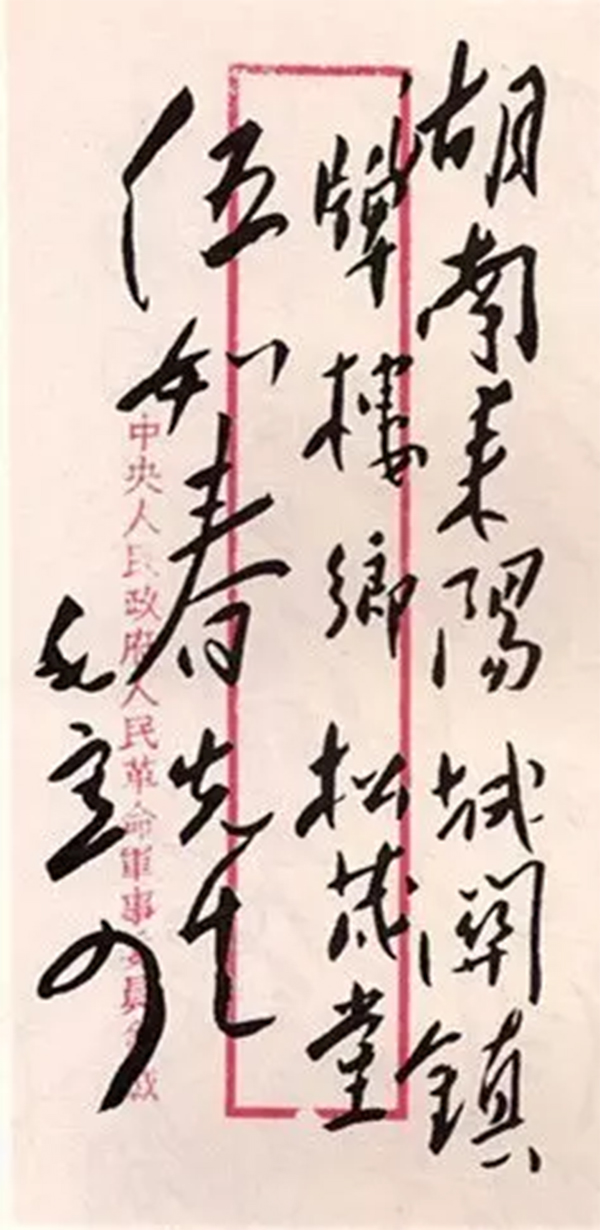 湖南耒陽城關鎮
牌樓鄉松茂堂
伍如春先生
毛
中央人民政府人民革命軍事委員會緘